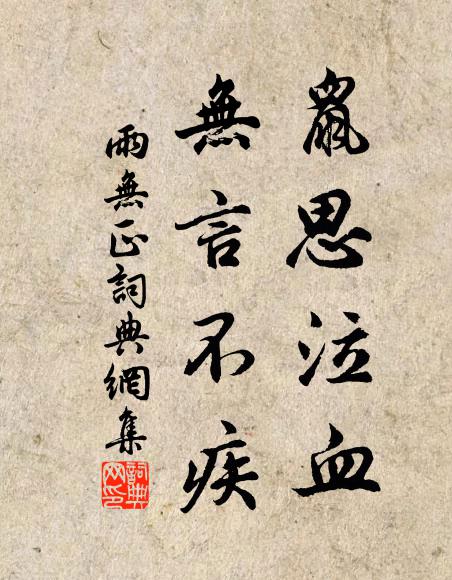 鼠思泣血
無言不疾
雨無正詞典網集
詞典網印